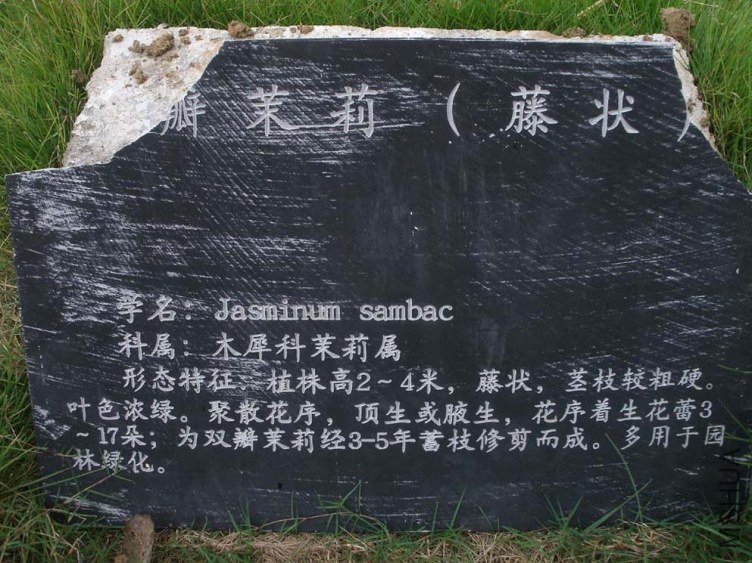 瓣茉莉(藤状)
学名: Jasminum sambac
科属: 木犀科茉莉属
形态特征: 植株高2~4米, 藤状, 茎枝较粗硬。
叶色浓绿。聚散花序, 顶生或腋生, 花序着生花蕾3
~17朵; 为双瓣茉莉经3-5年蓄枝修剪而成。多用于园
林绿化。